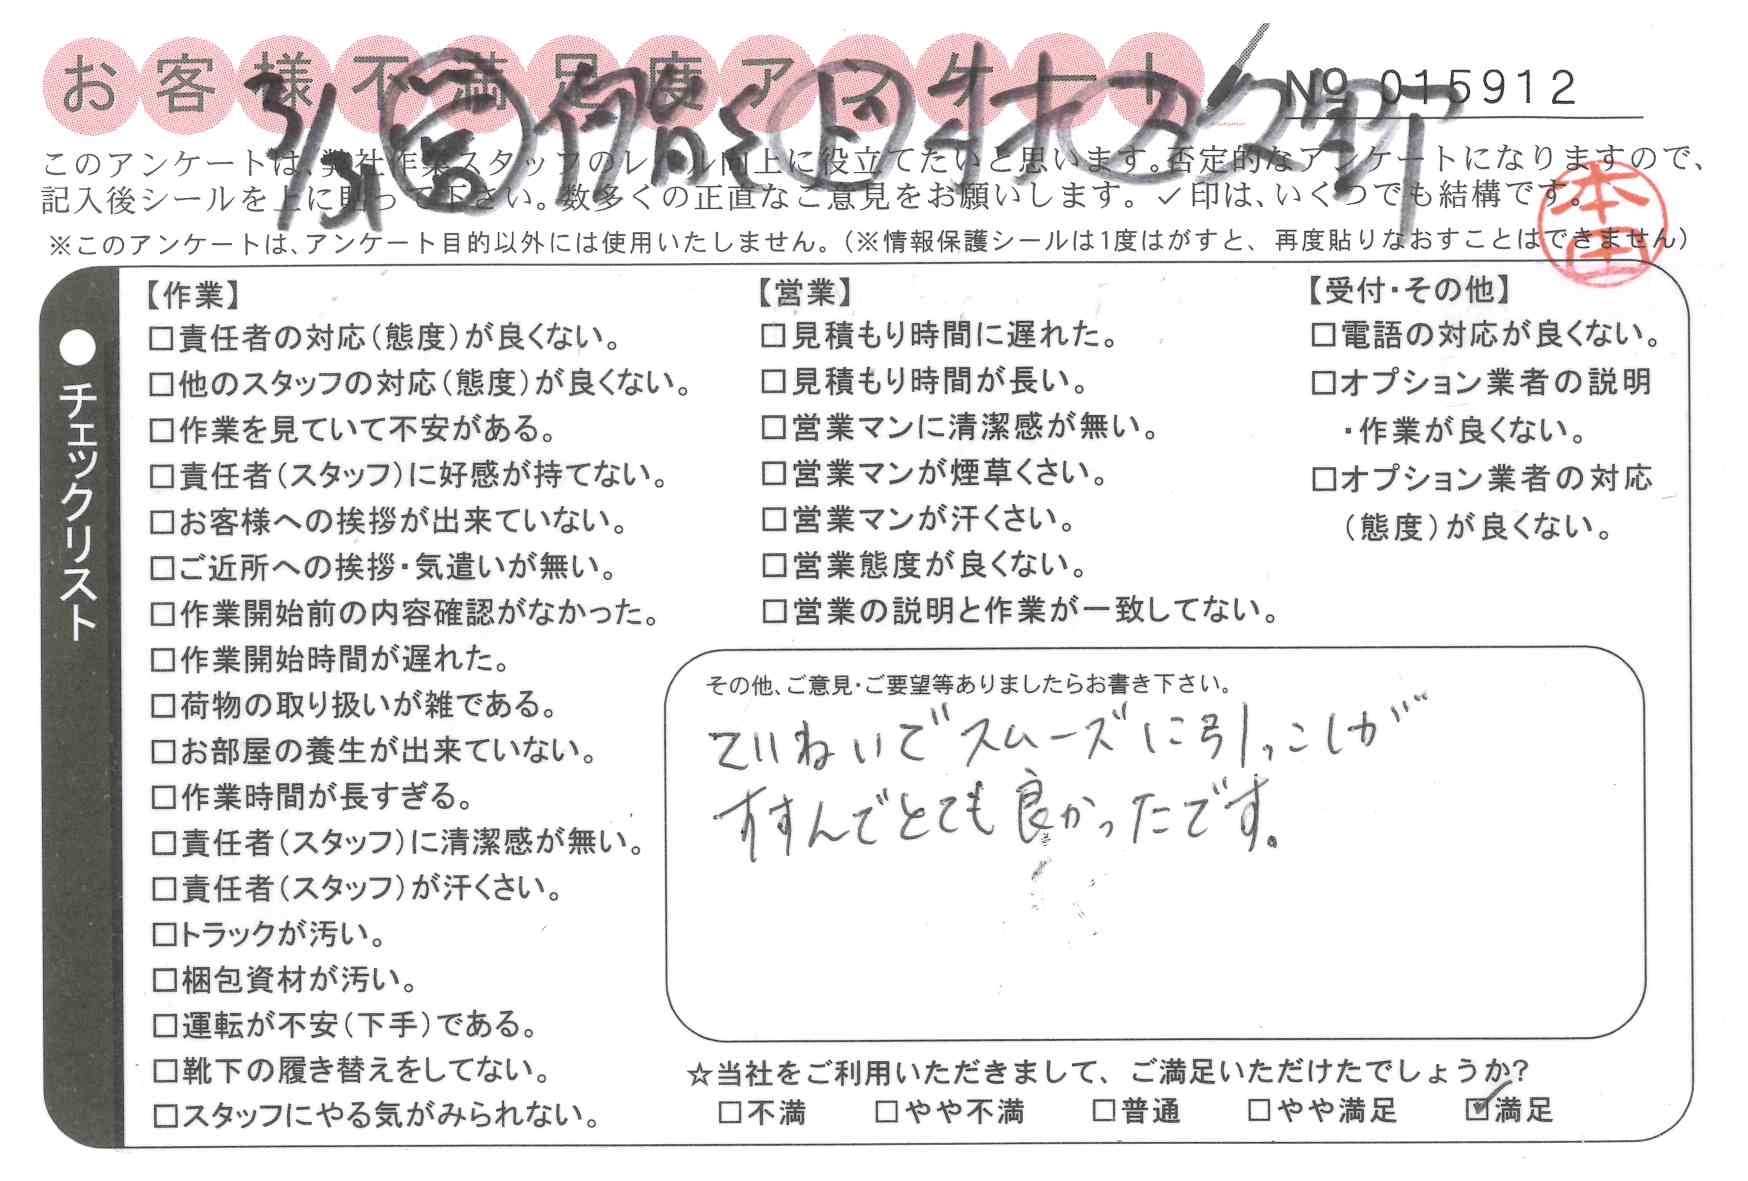 お客様不満足度アンケート
№ 015912
3/31
このアンケートは、弊社作業スタッフのレベル向上に役立てたいと思います。否定的なアンケートになりますので、
記入後シールを上に貼って下さい。数多くの正直なご意見をお願いします。✓印は、いくつでも結構です。
本田
※このアンケートは、アンケート目的以外には使用いたしません。(※情報保護シールは1度はがすと、再度貼りなおすことはできません)
●チェックリスト
【作業】
□責任者の対応(態度)が良くない。
□他のスタッフの対応(態度)が良くない。
□作業を見ていて不安がある。
□責任者(スタッフ)に好感が持てない。
□お客様への挨拶が出来ていない。
□ご近所への挨拶・気遣いが無い。
□作業開始前の内容確認がなかった。
□作業開始時間が遅れた。
□荷物の取り扱いが雑である。
□お部屋の養生が出来ていない。
□作業時間が長すぎる。
□責任者(スタッフ)に清潔感が無い。
□責任者(スタッフ)が汗くさい。
□トラックが汚い。
□梱包資材が汚い。
□運転が不安(下手)である。
□靴下の履き替えをしてない。
□スタッフにやる気がみられない。
【営業】
□見積もり時間に遅れた。
□見積もり時間が長い。
□営業マンに清潔感が無い。
□営業マンが煙草くさい。
□営業マンが汗くさい。
□営業態度が良くない。
□営業の説明と作業が一致してない。
【受付・その他】
□電話の対応が良くない。
□オプション業者の説明
・作業が良くない。
□オプション業者の対応
(態度)が良くない。
その他、ご意見・ご要望等ありましたらお書き下さい。
ていねいでスムーズに引っこしが
すすんでとても良かったです。
☆当社をご利用いただきまして、ご満足いただけたでしょうか?
□不満 □やや不満 □普通 □やや満足 ☑満足